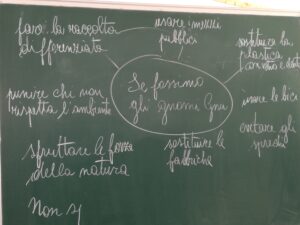 fare la raccolta
differenziata
usare i mezzi
pubblici
sostituire la
plastica
punire chi non
rispetta l'ambiente
Se fossimo
gli gnomi Gnu
usare le bici
evitare gli
sprechi
sfruttare le forze
della natura
sostituire le
fabbriche
Non s